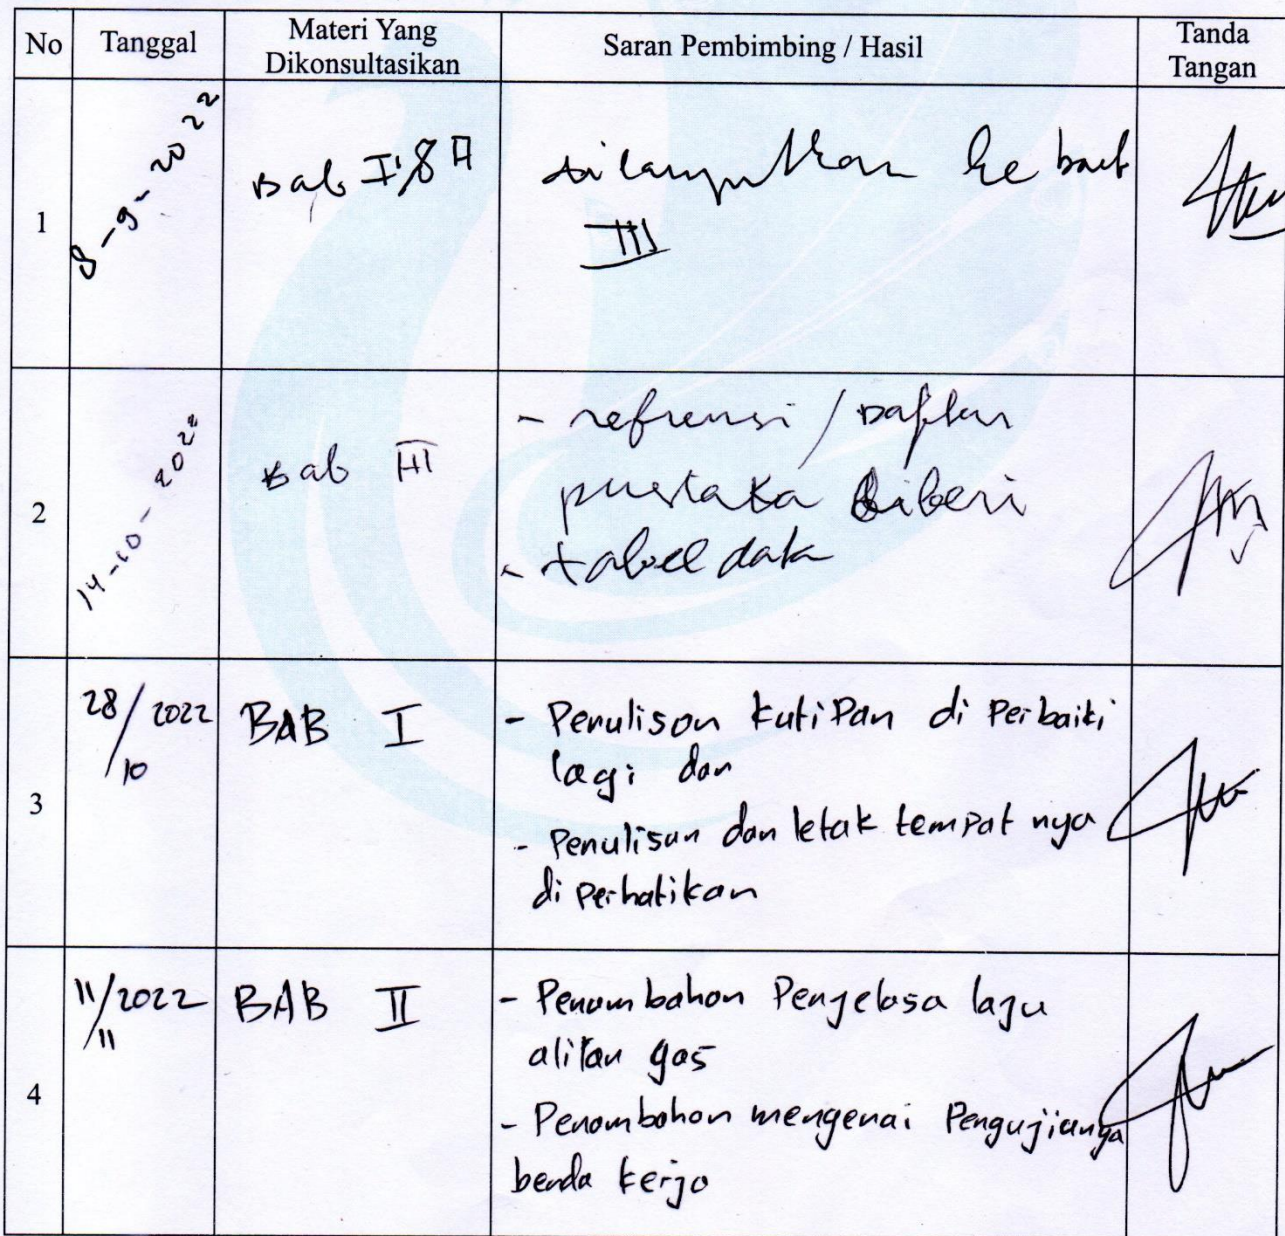 No Tanggal Materi Yang Dikonsultasikan Saran Pembimbing / Hasil Tanda Tangan
1 8-9-2022 Bab I & II dilanjutkan ke bab
III
2 14-10-2022 Bab III - refrensi / Daftar
pustaka diberi
- tabel data
3 28/10 2022 BAB I - Penulisan kutipan di Perbaiki
lagi dan
- Penulisan dan letak tempat nya
di Perhatikan
4 11/11 2022 BAB II - Penambahan Penjelasa laju
aliran gas
- Penambahan mengenai Pengujianya
benda kerja